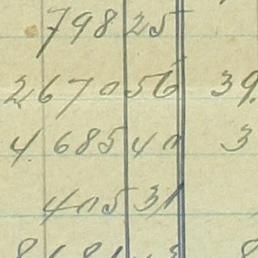 798 25
2670 56 39
4685 40 3
405 31